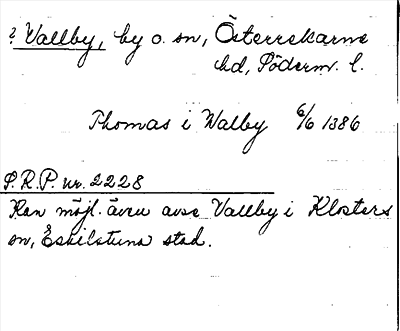 ? Vallby, by o. sn, Österrekarne
hd, Söderm. l.
Thomas i Walby 6/6 1386
S.R.P. nr. 2228
Kan möjl. även avse Vallby i Klosters
sn, Eskilstuna stad.